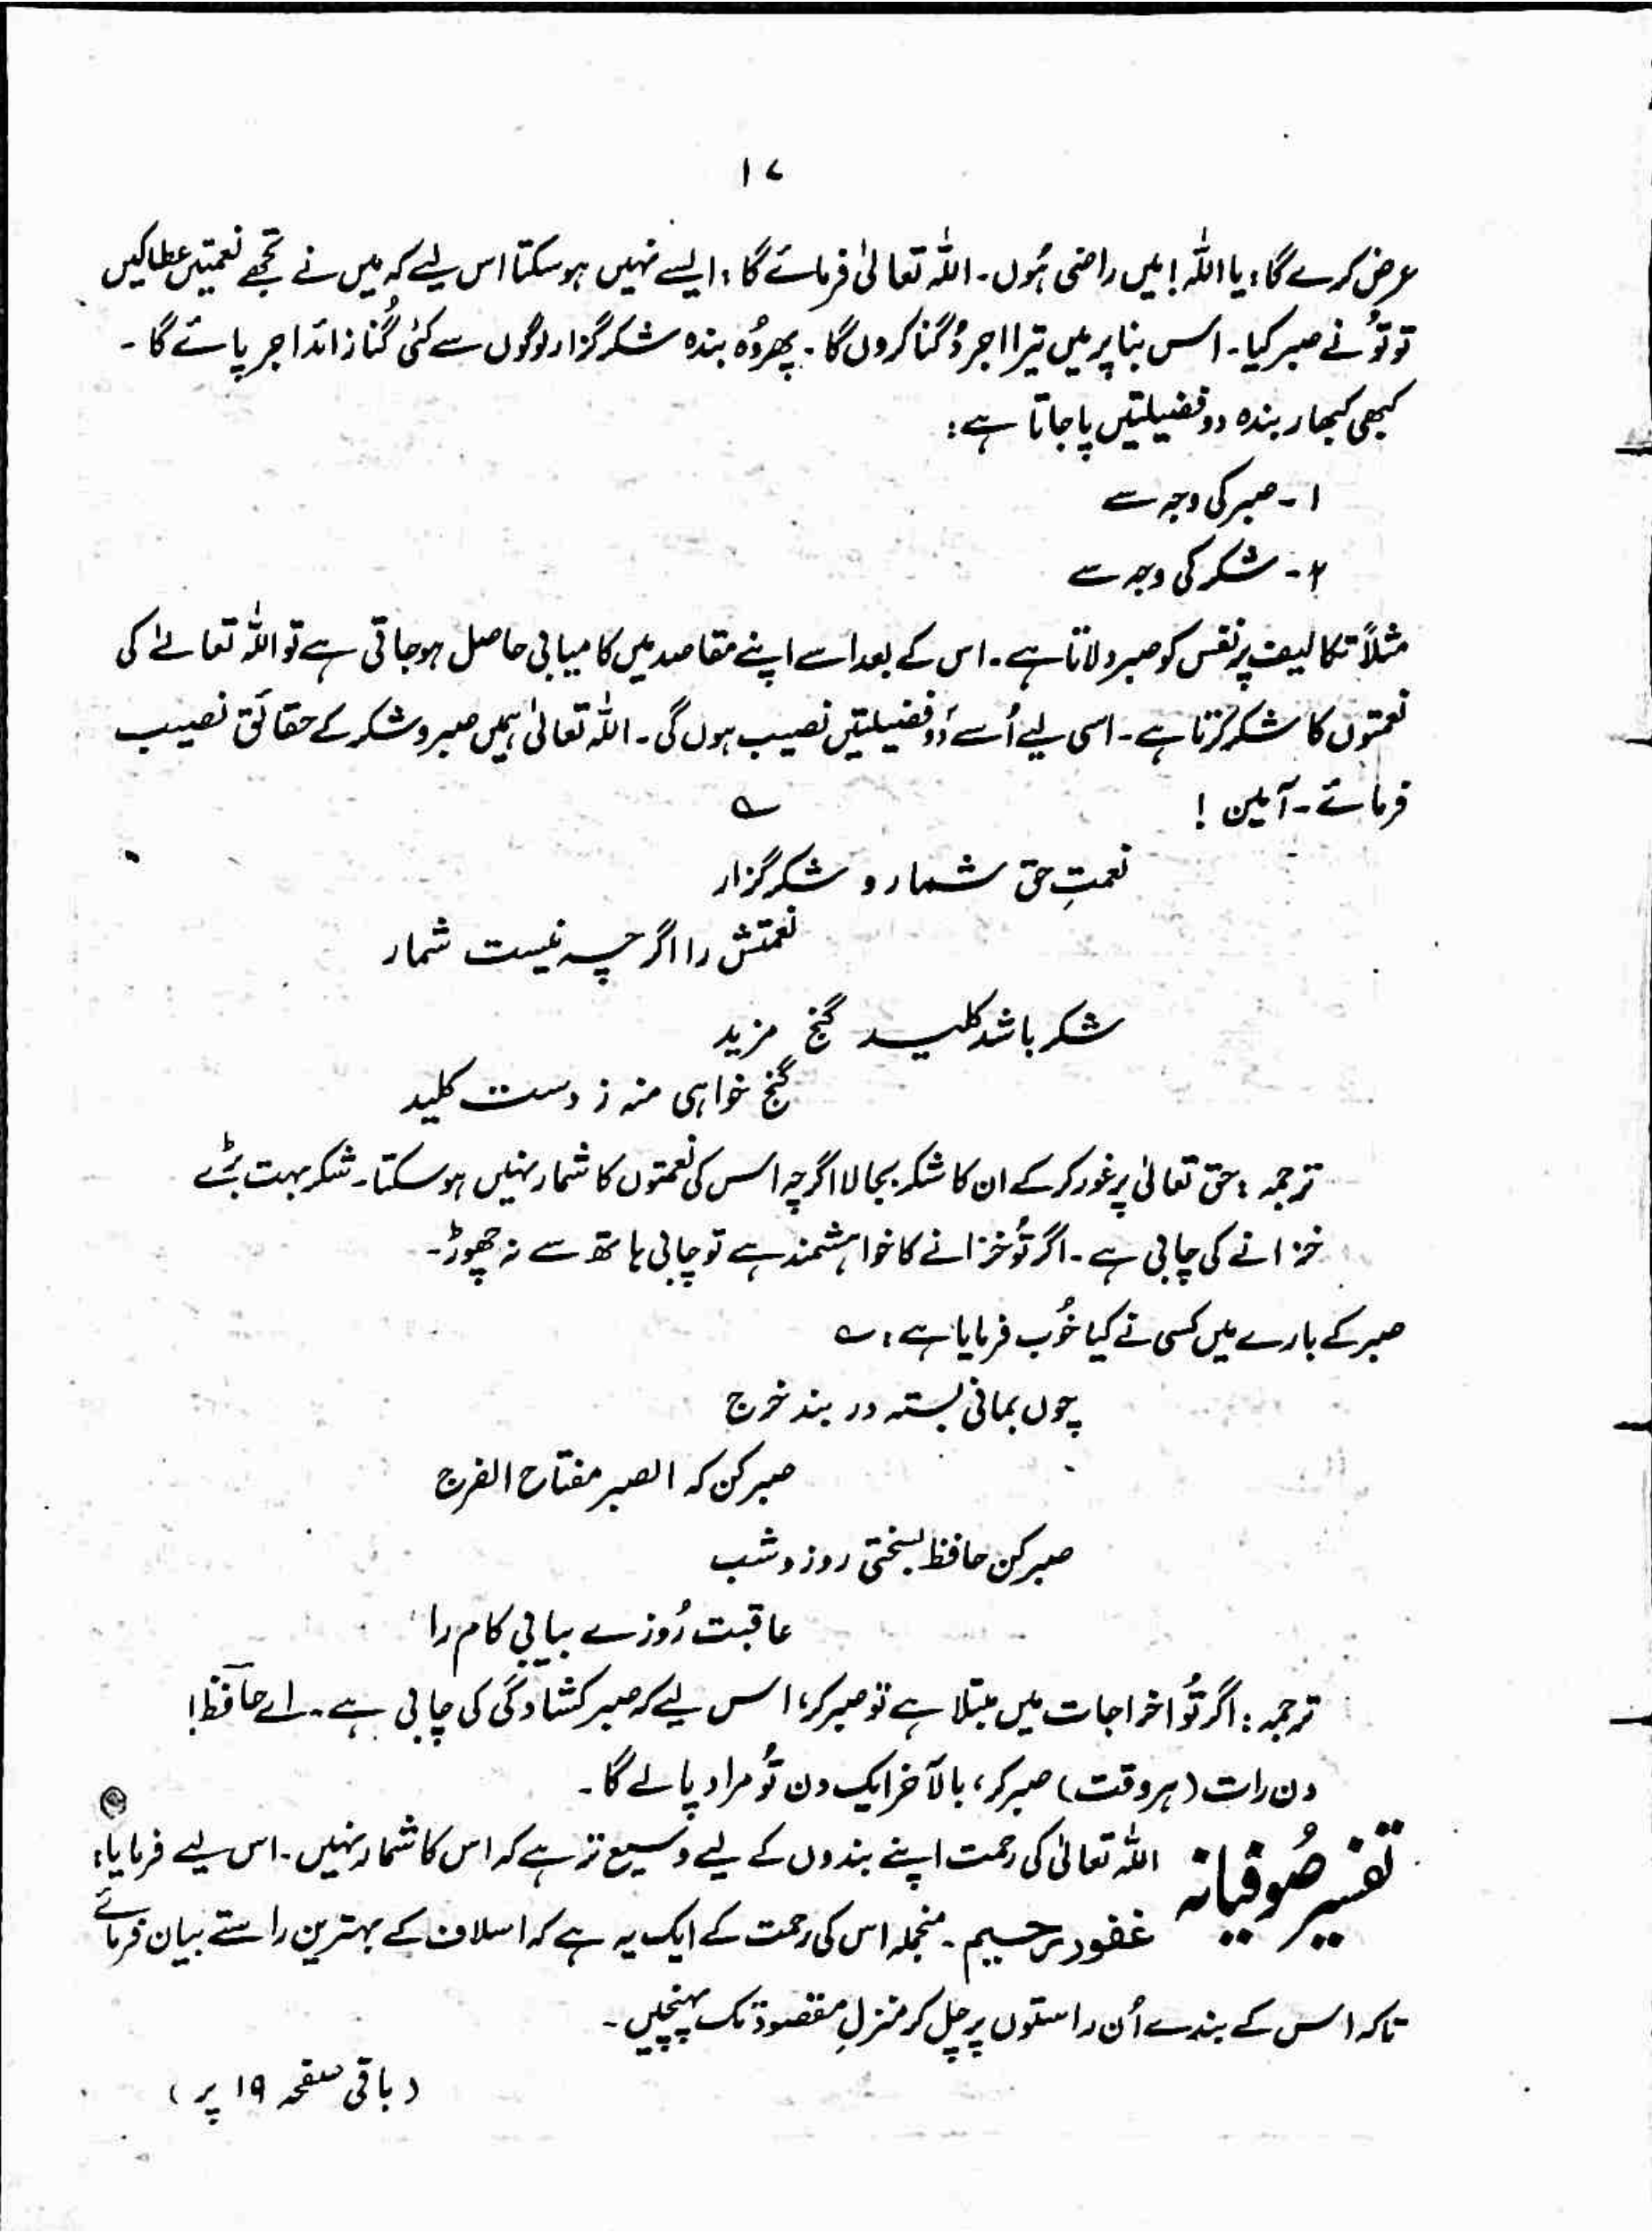 ۱۷
عرض کرے گا: یا اللہ! میں راضی ہُوں۔ اللہ تعالیٰ فرمائے گا: ایسے نہیں ہو سکتا اس لیے کہ میں نے تجھے نعمتیں عطا کیں
تو تُو نے صبر کیا۔ اس بنا پر میں تیرا اجر دُگنا کروں گا۔ پھر وُہ بندہ شکر گزار لوگوں سے کئی گُنا زائد اجر پائے گا۔
کبھی کبھار بندہ دو فضیلتیں پا جاتا ہے:
۱۔ صبر کی وجہ سے
۲۔ شکر کی وجہ سے
مثلاً تکالیف پر نفس کو صبر دلاتا ہے۔ اس کے بعد اسے اپنے مقاصد میں کامیابی حاصل ہو جاتی ہے تو اللہ تعالےٰ کی
نعمتوں کا شکر کرتا ہے۔ اسی لیے اُسے دو فضیلتیں نصیب ہوں گی۔ اللہ تعالیٰ ہمیں صبر و شکر کے حقائق نصیب
فرمائے۔ آمین ! ؎
نعمتِ حق شمار و شکر گزار
نعمتش را اگرچہ نیست شمار
شکر باشد کلید گنج مزید
گنج خواہی منہ ز دست کلید
ترجمہ: حق تعالیٰ پر غور کر کے ان کا شکر بجا لا اگرچہ اس کی نعمتوں کا شمار نہیں ہو سکتا۔ شکر بہت بڑے
خزانے کی چابی ہے۔ اگر تُو خزانے کا خواہشمند ہے تو چابی ہاتھ سے نہ چھوڑ۔
صبر کے بارے میں کسی نے کیا خُوب فرمایا ہے: ؎
چوں بمانی بستہ در بند خرج
صبر کن کہ الصبر مفتاح الفرج
صبر کن حافظ بسختی روز و شب
عاقبت رُوزے بیابی کام را
ترجمہ: اگر تُو اخراجات میں مبتلا ہے تو صبر کر، اس لیے کہ صبر کشادگی کی چابی ہے۔ اے حافظ!
دن رات (ہر وقت) صبر کر، بالآخر ایک دن تُو مراد پا لے گا۔
تفسیر صُوفیانہ اللہ تعالیٰ کی رحمت اپنے بندوں کے لیے وسیع تر ہے کہ اس کا شمار نہیں۔ اس لیے فرمایا:
غفور رحیم۔ منجملہ اس کی رحمت کے ایک یہ ہے کہ اسلاف کے بہترین راستے بیان فرمائے
تاکہ اس کے بندے اُن راستوں پر چل کر منزلِ مقصود تک پہنچیں۔
(باقی صفحہ ۱۹ پر)